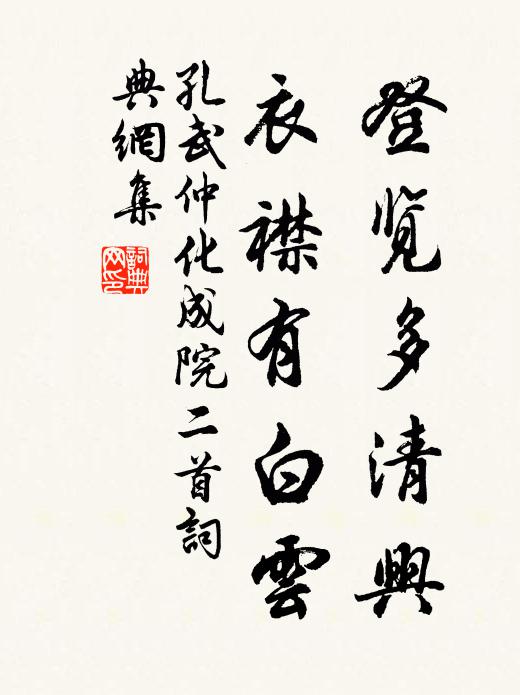 登覽多清興
衣襟有白雲
孔武仲化成院二首詞
典網集
詞典
网印